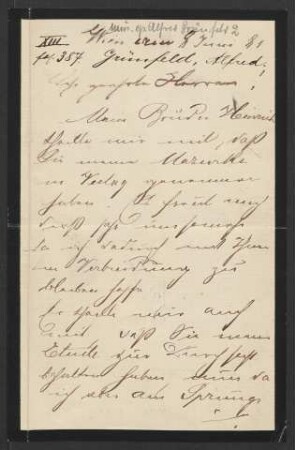 Mus. ep. Alfred Grünfeld 2
XIII
Wien den 8 Juni 81
fol. 387. Grünfeld, Alfred.
Sehr geehrte Herren!
Mein Bruder Heinrich
theilte mir mit, daß
Sie meine Mazurka
in Verlag genommen
haben. Es freut mich
dieß sehr
da ich dadurch mit Ihnen
in Verbindung zu
bleiben hoffe.
Er theilte mir auch
mit daß Sie meine
Etude zur Durchsicht
behalten haben, nun da
ich am Sprunge